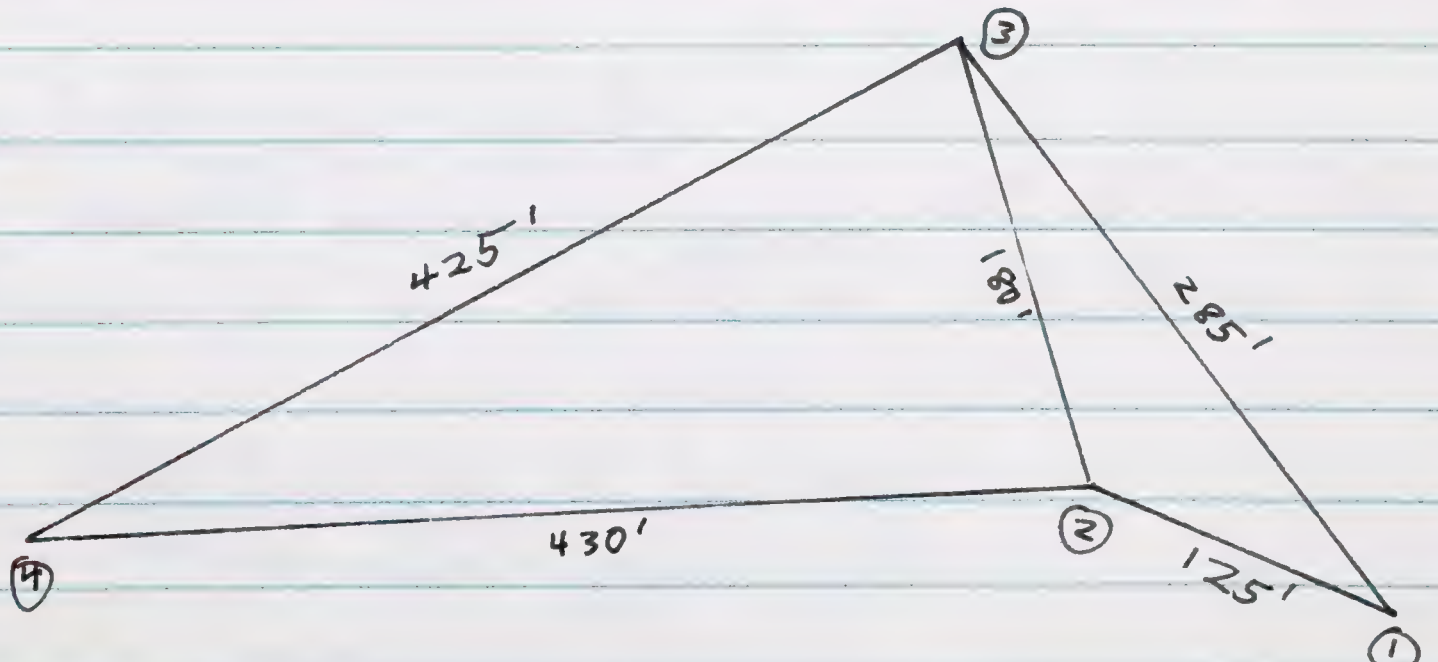 ③
425'
180'
285'
②
430'
125'
④
①